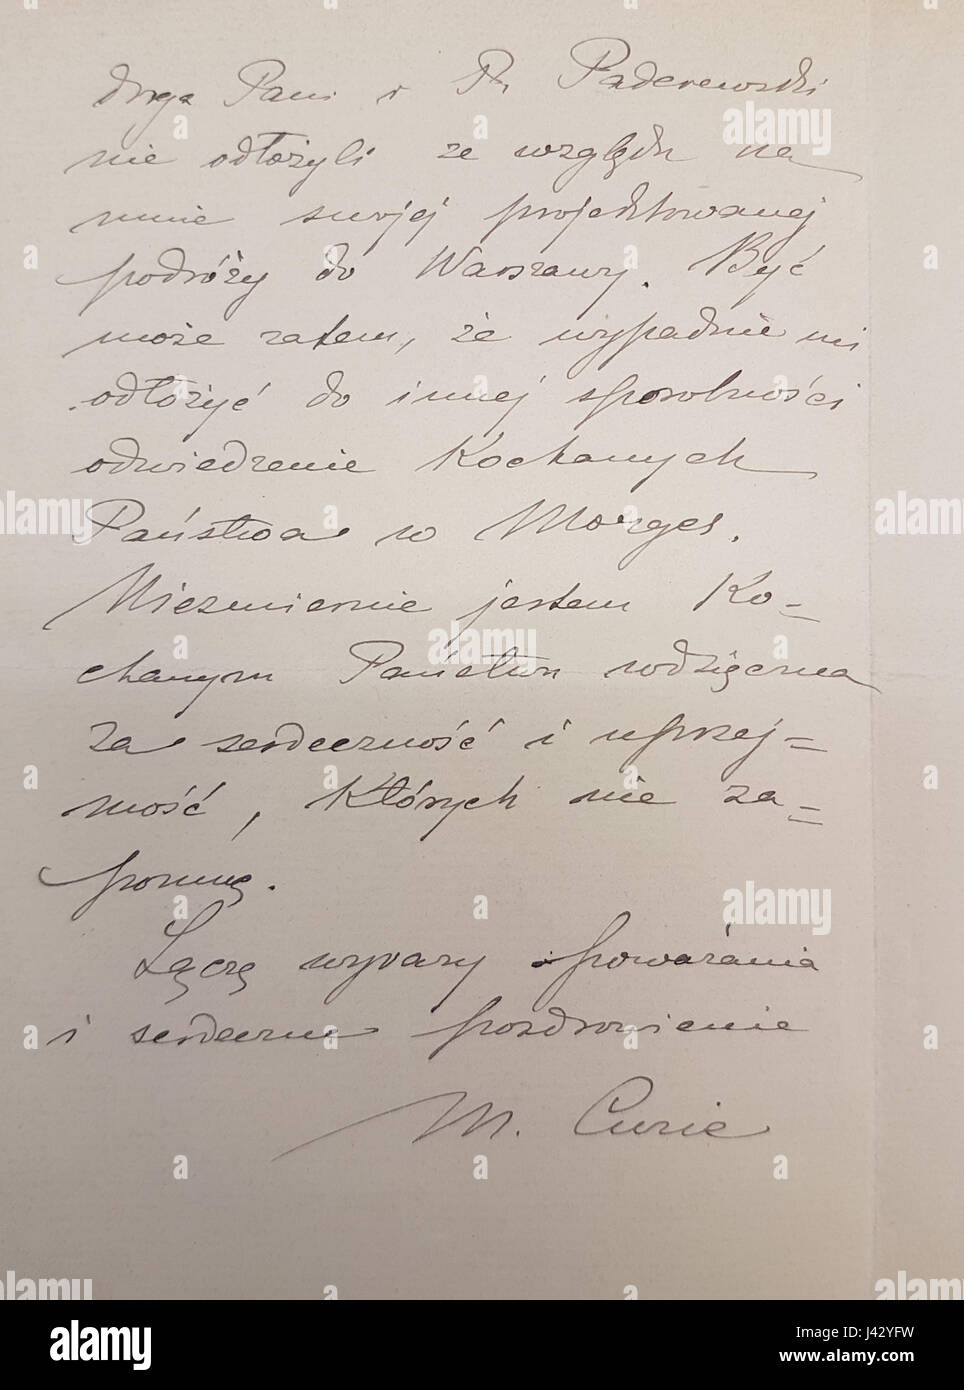 droga Pani i P. Paderewski
nie odłożyli ze względu na
mnie swojej projektowanej
podróży do Warszawy. Być
może zatem, że wypadnie mi
odłożyć do innej sposobności
odwiedzenie Kochanych
Państwa w Morges.
Niezmiernie jestem Ko-
chanym Państwu wdzięczna
za serdeczność i uprzej=
mość, których nie za=
pomnę.
Łączę wyrazy poważania
i serdeczne pozdrowienie
M. Curie
alamy
www.alamy.com
Image ID: J42YFW